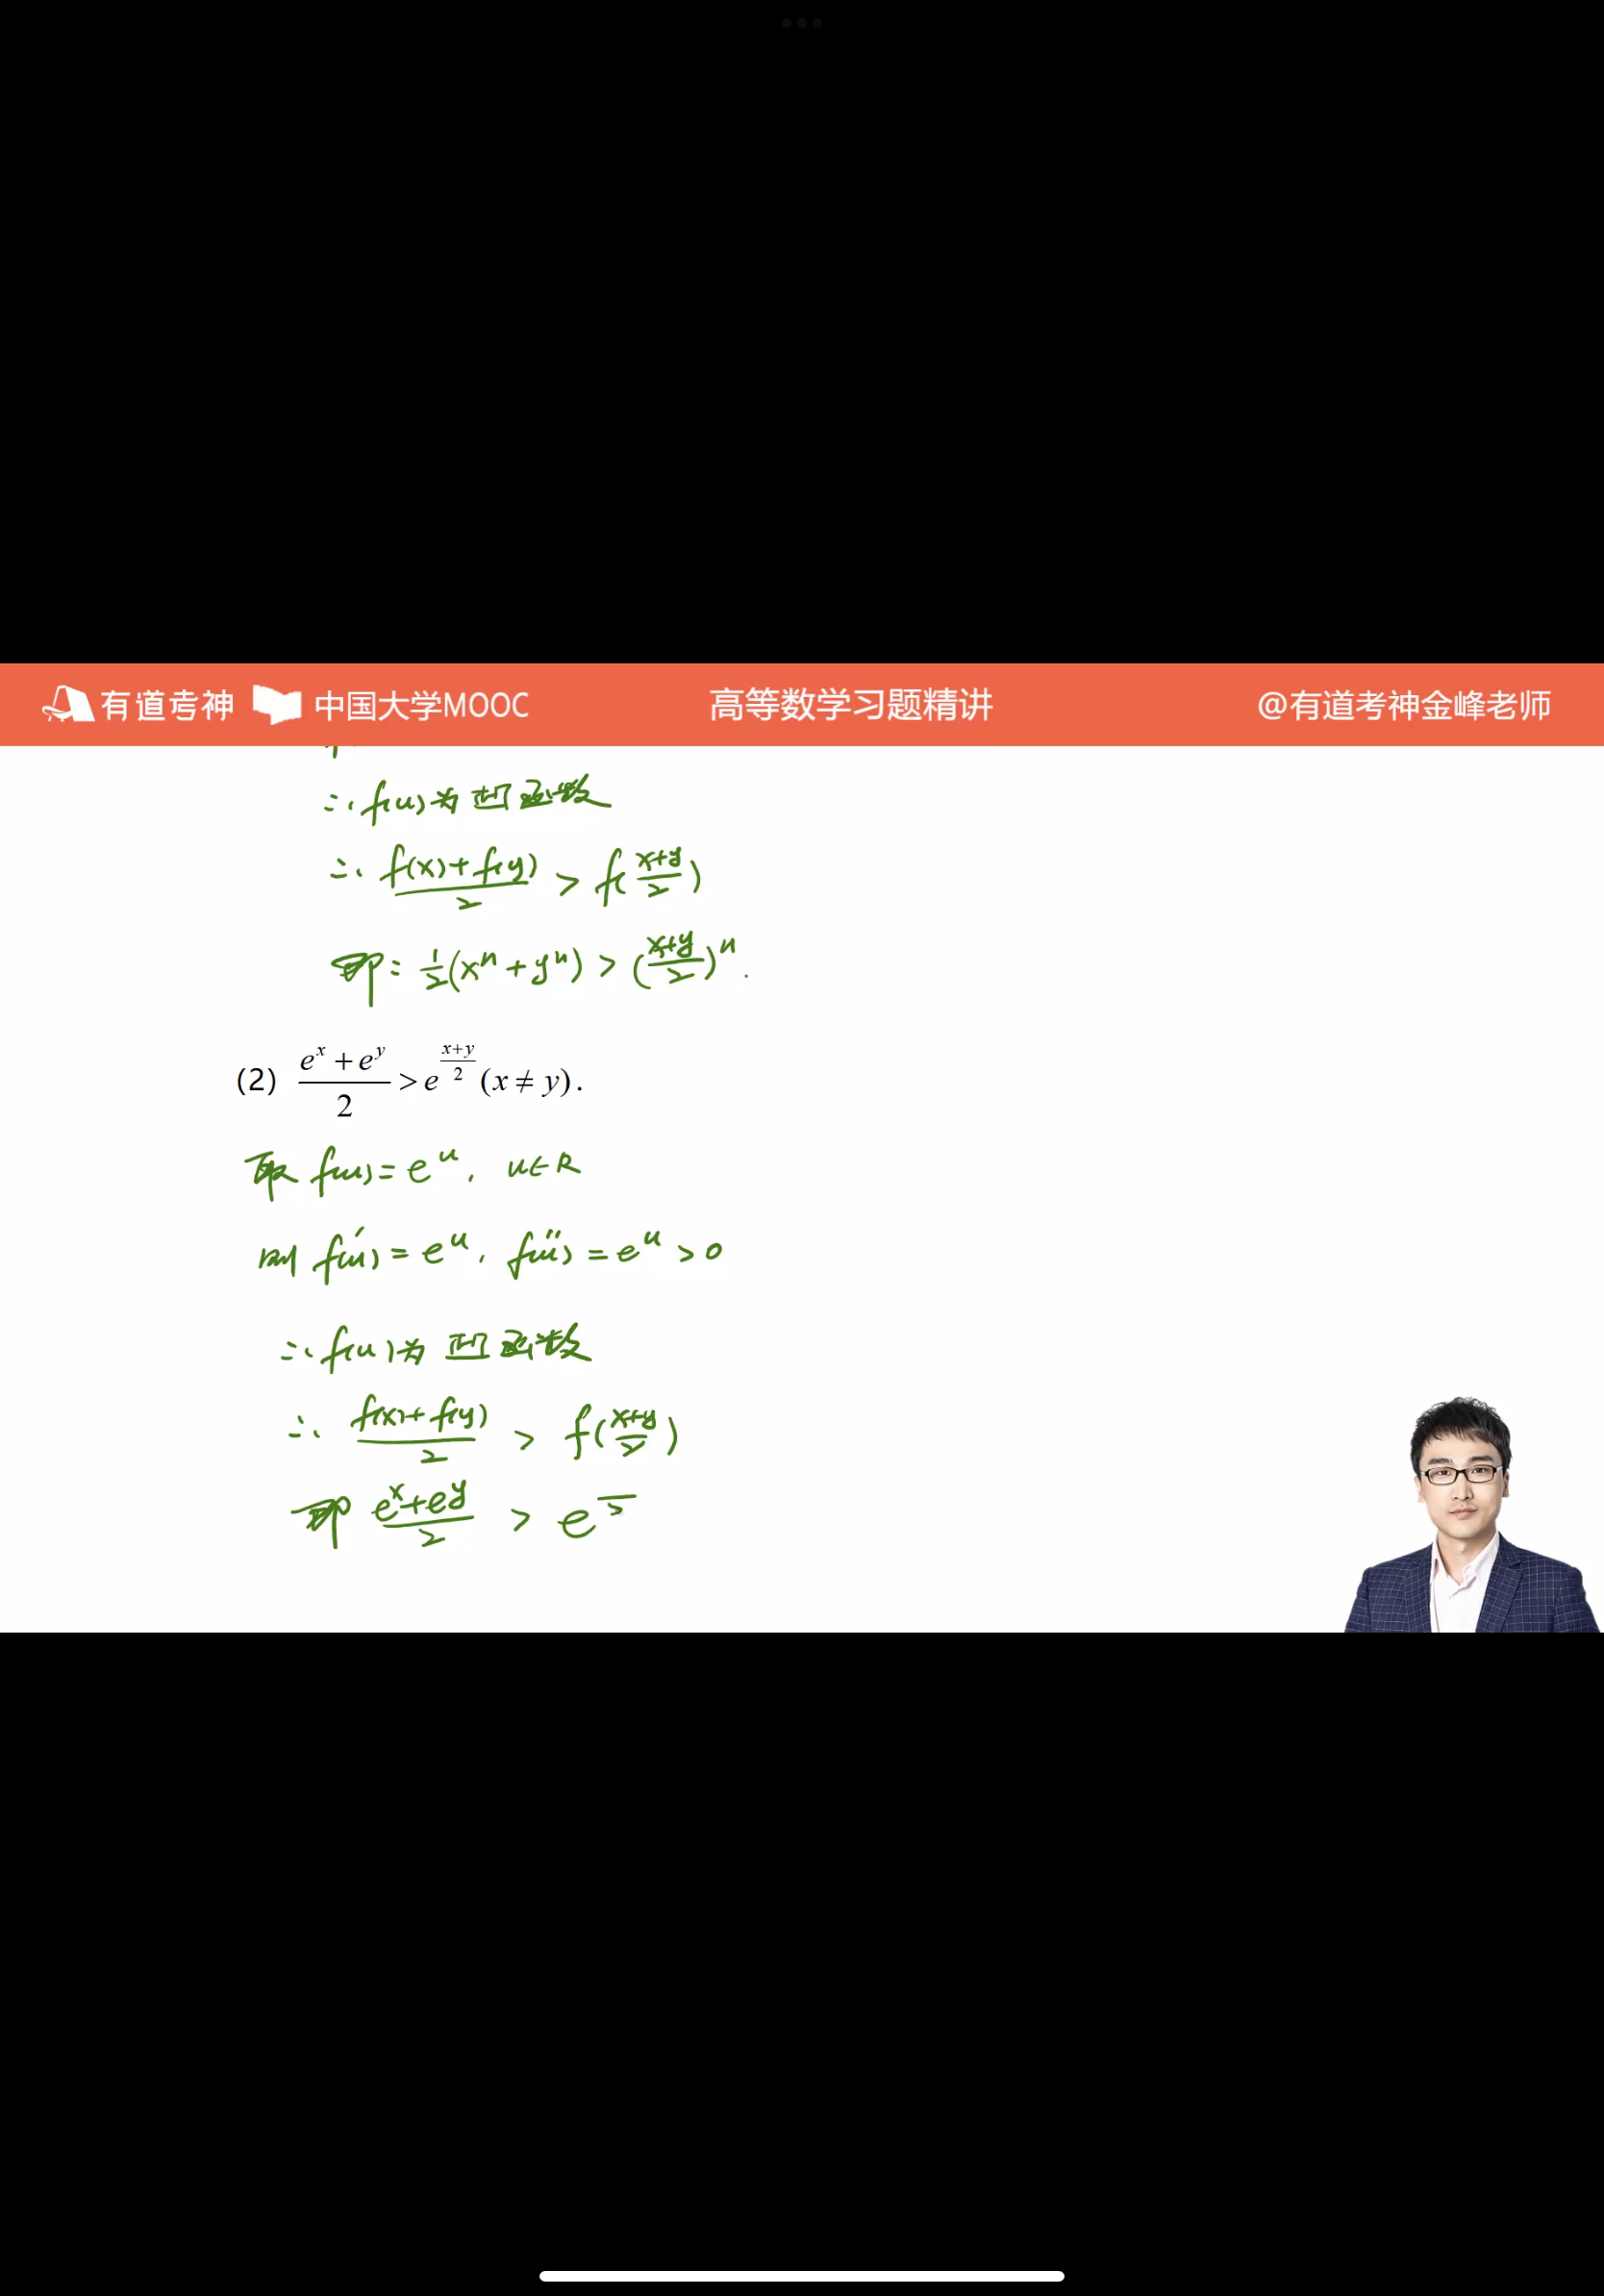 有道考神 中国大学MOOC 高等数学习题精讲 @有道考神金峰老师
∴ f(u)为凹函数
∴ \frac{f(x)+f(y)}{2} > f(\frac{x+y}{2})
即: \frac{1}{2}(x^n+y^n) > (\frac{x+y}{2})^n.
(2) \frac{e^x+e^y}{2} > e^{\frac{x+y}{2}} (x ≠ y).
取 f(u) = e^u, u∈R
则 f'(u) = e^u, f''(u) = e^u > 0
∴ f(u)为凹函数
∴ \frac{f(x)+f(y)}{2} > f(\frac{x+y}{2})
即 \frac{e^x+e^y}{2} > e^{\frac{}{2}}